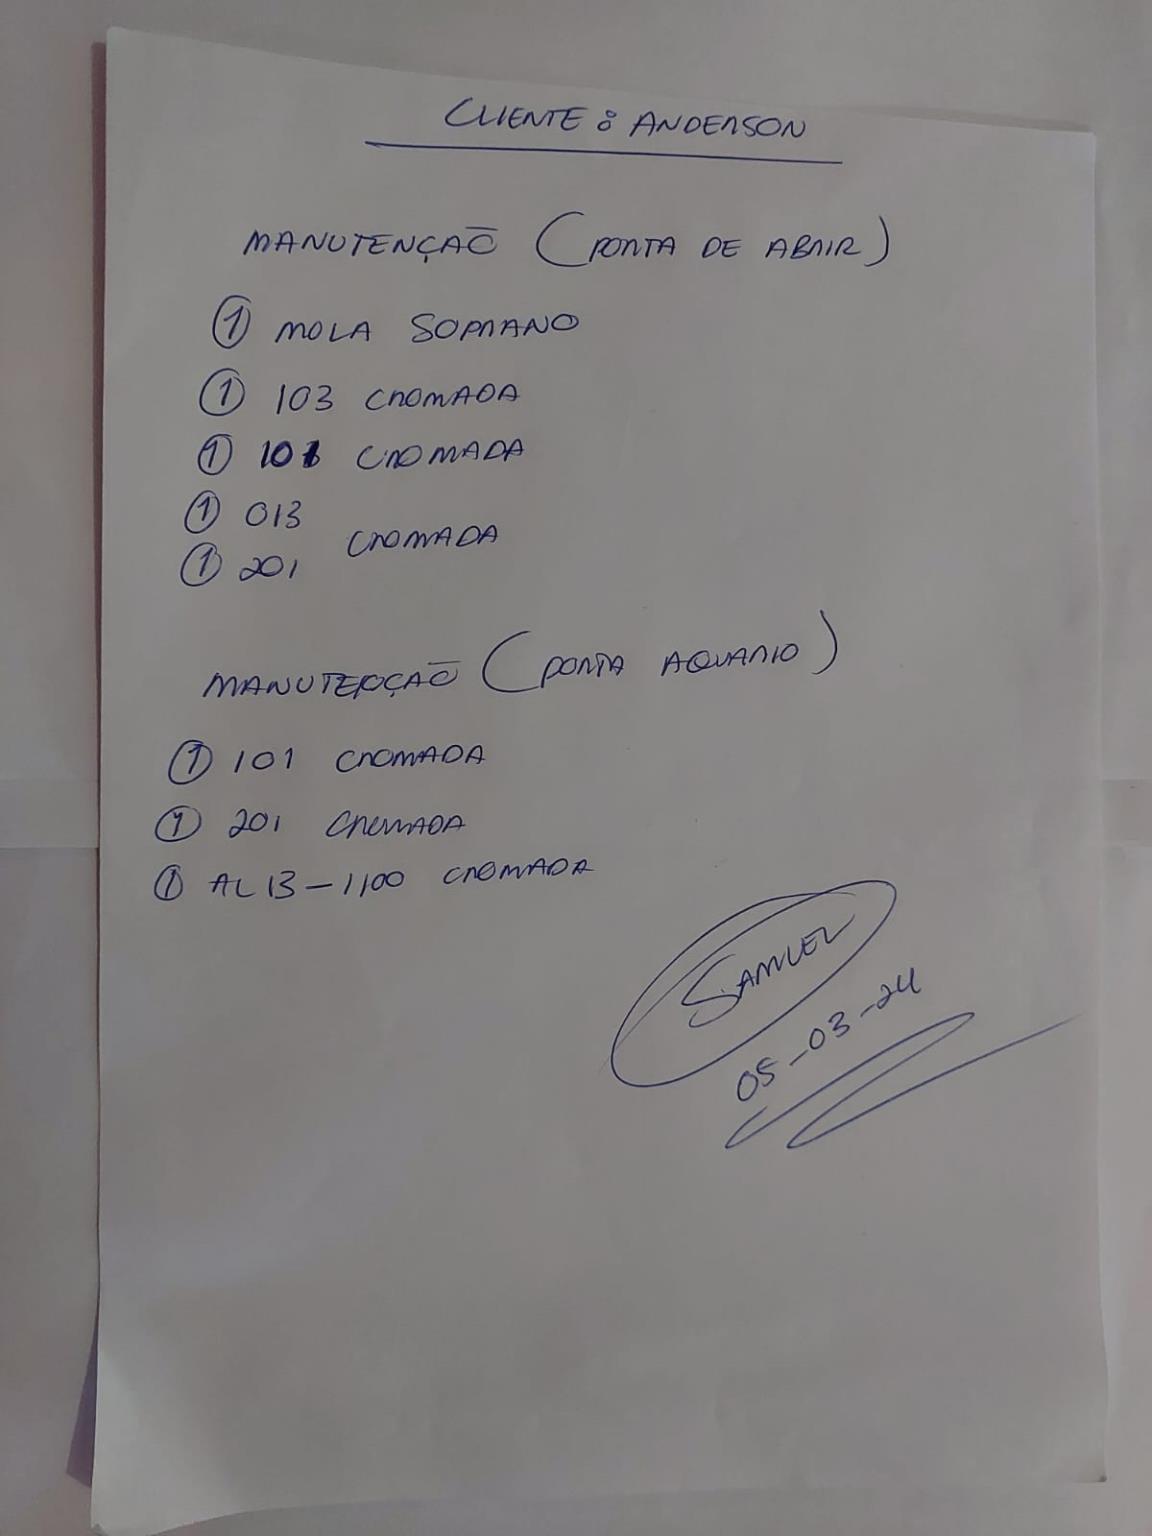 CLIENTE: ANDERSON
MANUTENÇÃO (PORTA DE ABRIR)
1 MOLA SOPRANO
1 103 CROMADA
1 101 CROMADA
1 013
CROMADA
1 201
MANUTENÇÃO (PORTA AQUARIO)
1 101 CROMADA
1 201 CROMADA
1 AL 13-1100 CROMADA
SAMUEL
05-03-24